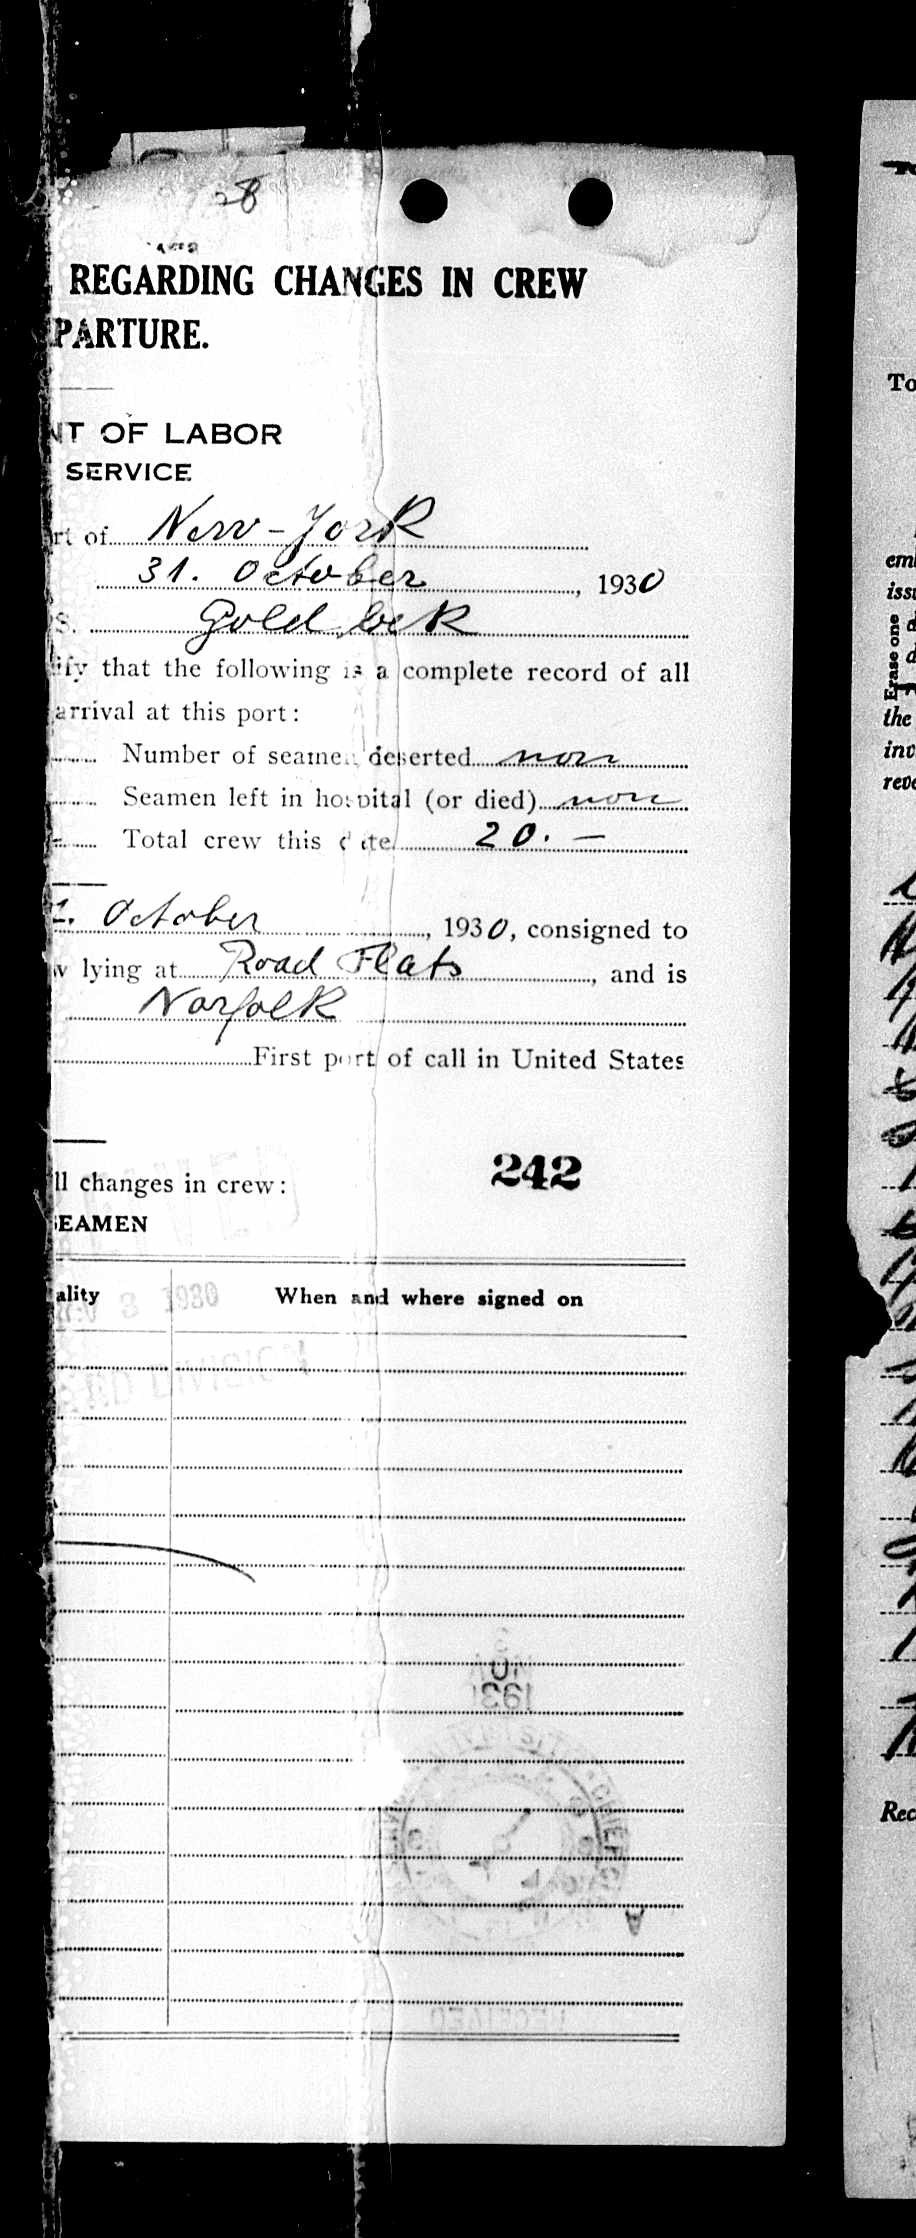 28
REGARDING CHANGES IN CREW
PARTURE.
NT OF LABOR
SERVICE
rt of New-York
31. October, 1930
S. Goldbek
ify that the following is a complete record of all
arrival at this port:
Number of seamen deserted non
Seamen left in hospital (or died) non
Total crew this date 20. —
1. October, 1930, consigned to
w lying at Road Flats, and is
Norfolk
First port of call in United States
242
ll changes in crew:
SEAMEN
ality When and where signed on
3 1930
DIVISION
NOV
193
A
RECEIVED
To
em
issu
Erase one
d
d
the
inv
reve
Rec